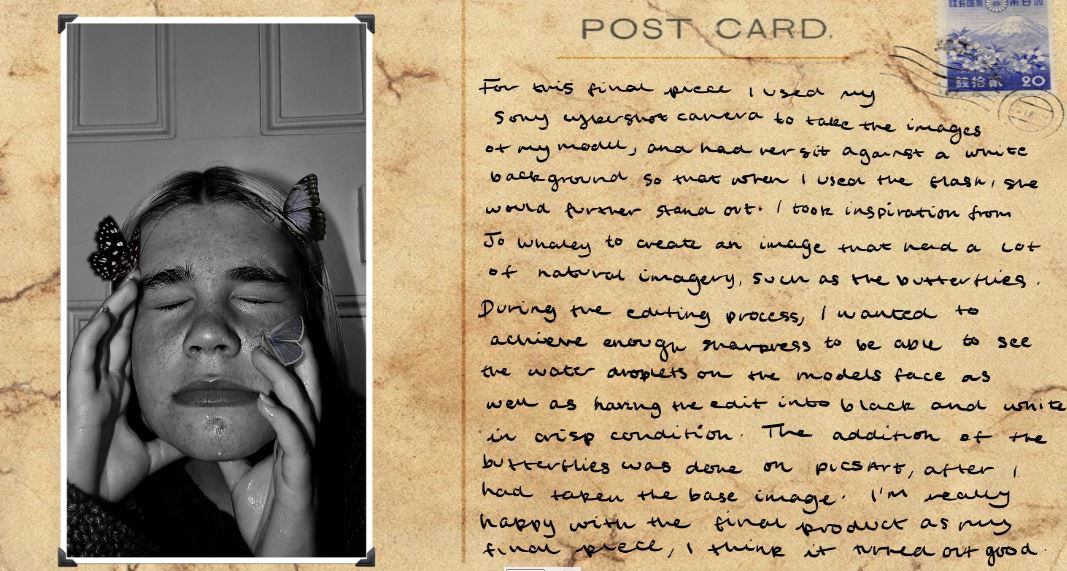 POST CARD.
錢拾貳 20
For this final piece I used my
Sony cybershot camera to take the images
of my model, and had her sit against a white
background so that when I used the flash, she
would further stand out. I took inspiration from
Jo Whaley to create an image that had a lot
of natural imagery, such as the butterflies.
During the editing process, I wanted to
achieve enough sharpness to be able to see
the water droplets on the models face as
well as having the edit into black and white
in crisp condition. The addition of the
butterflies was done on picsArt, after I
had taken the base image. I'm really
happy with the final product as my
final piece, I think it turned out good.